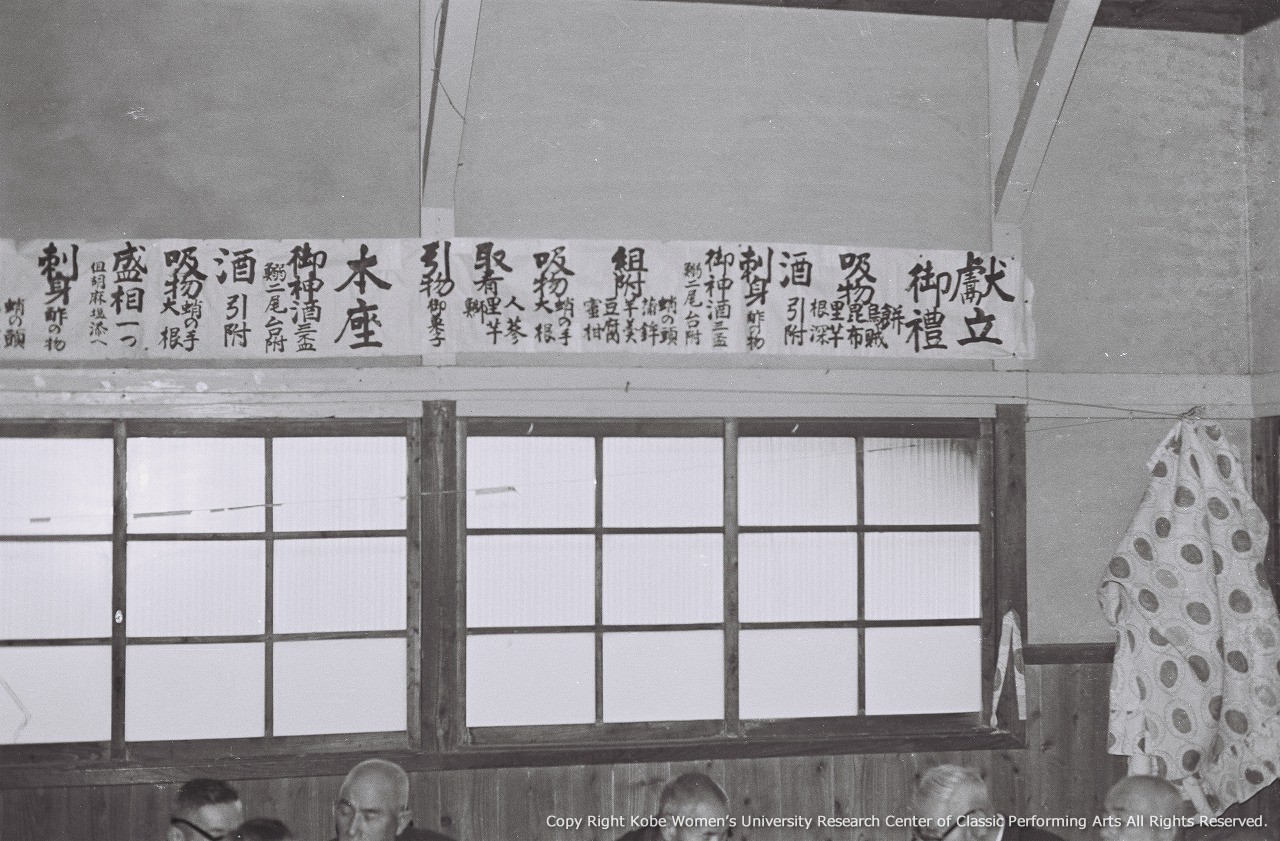 獻立
御禮
吸物
餅
烏賊
昆布
里芋
根深
酒
引附
刺身
酢の物
御神酒
三盃
二尾
台附
組附
蛸の頭
蒲鉾
羊羹
豆腐
蜜柑
吸物
蛸の手
大根
取肴
人蔘
里芋
引物
御菓子
本座
御神酒
三盃
二尾
台附
酒
引附
吸物
蛸の手
大根
盛相一つ
但胡麻塩添へ
刺身
酢の物
蛸の頭
Copy Right Kobe Women's University Research Center of Classic Performing Arts All Rights Reserved.